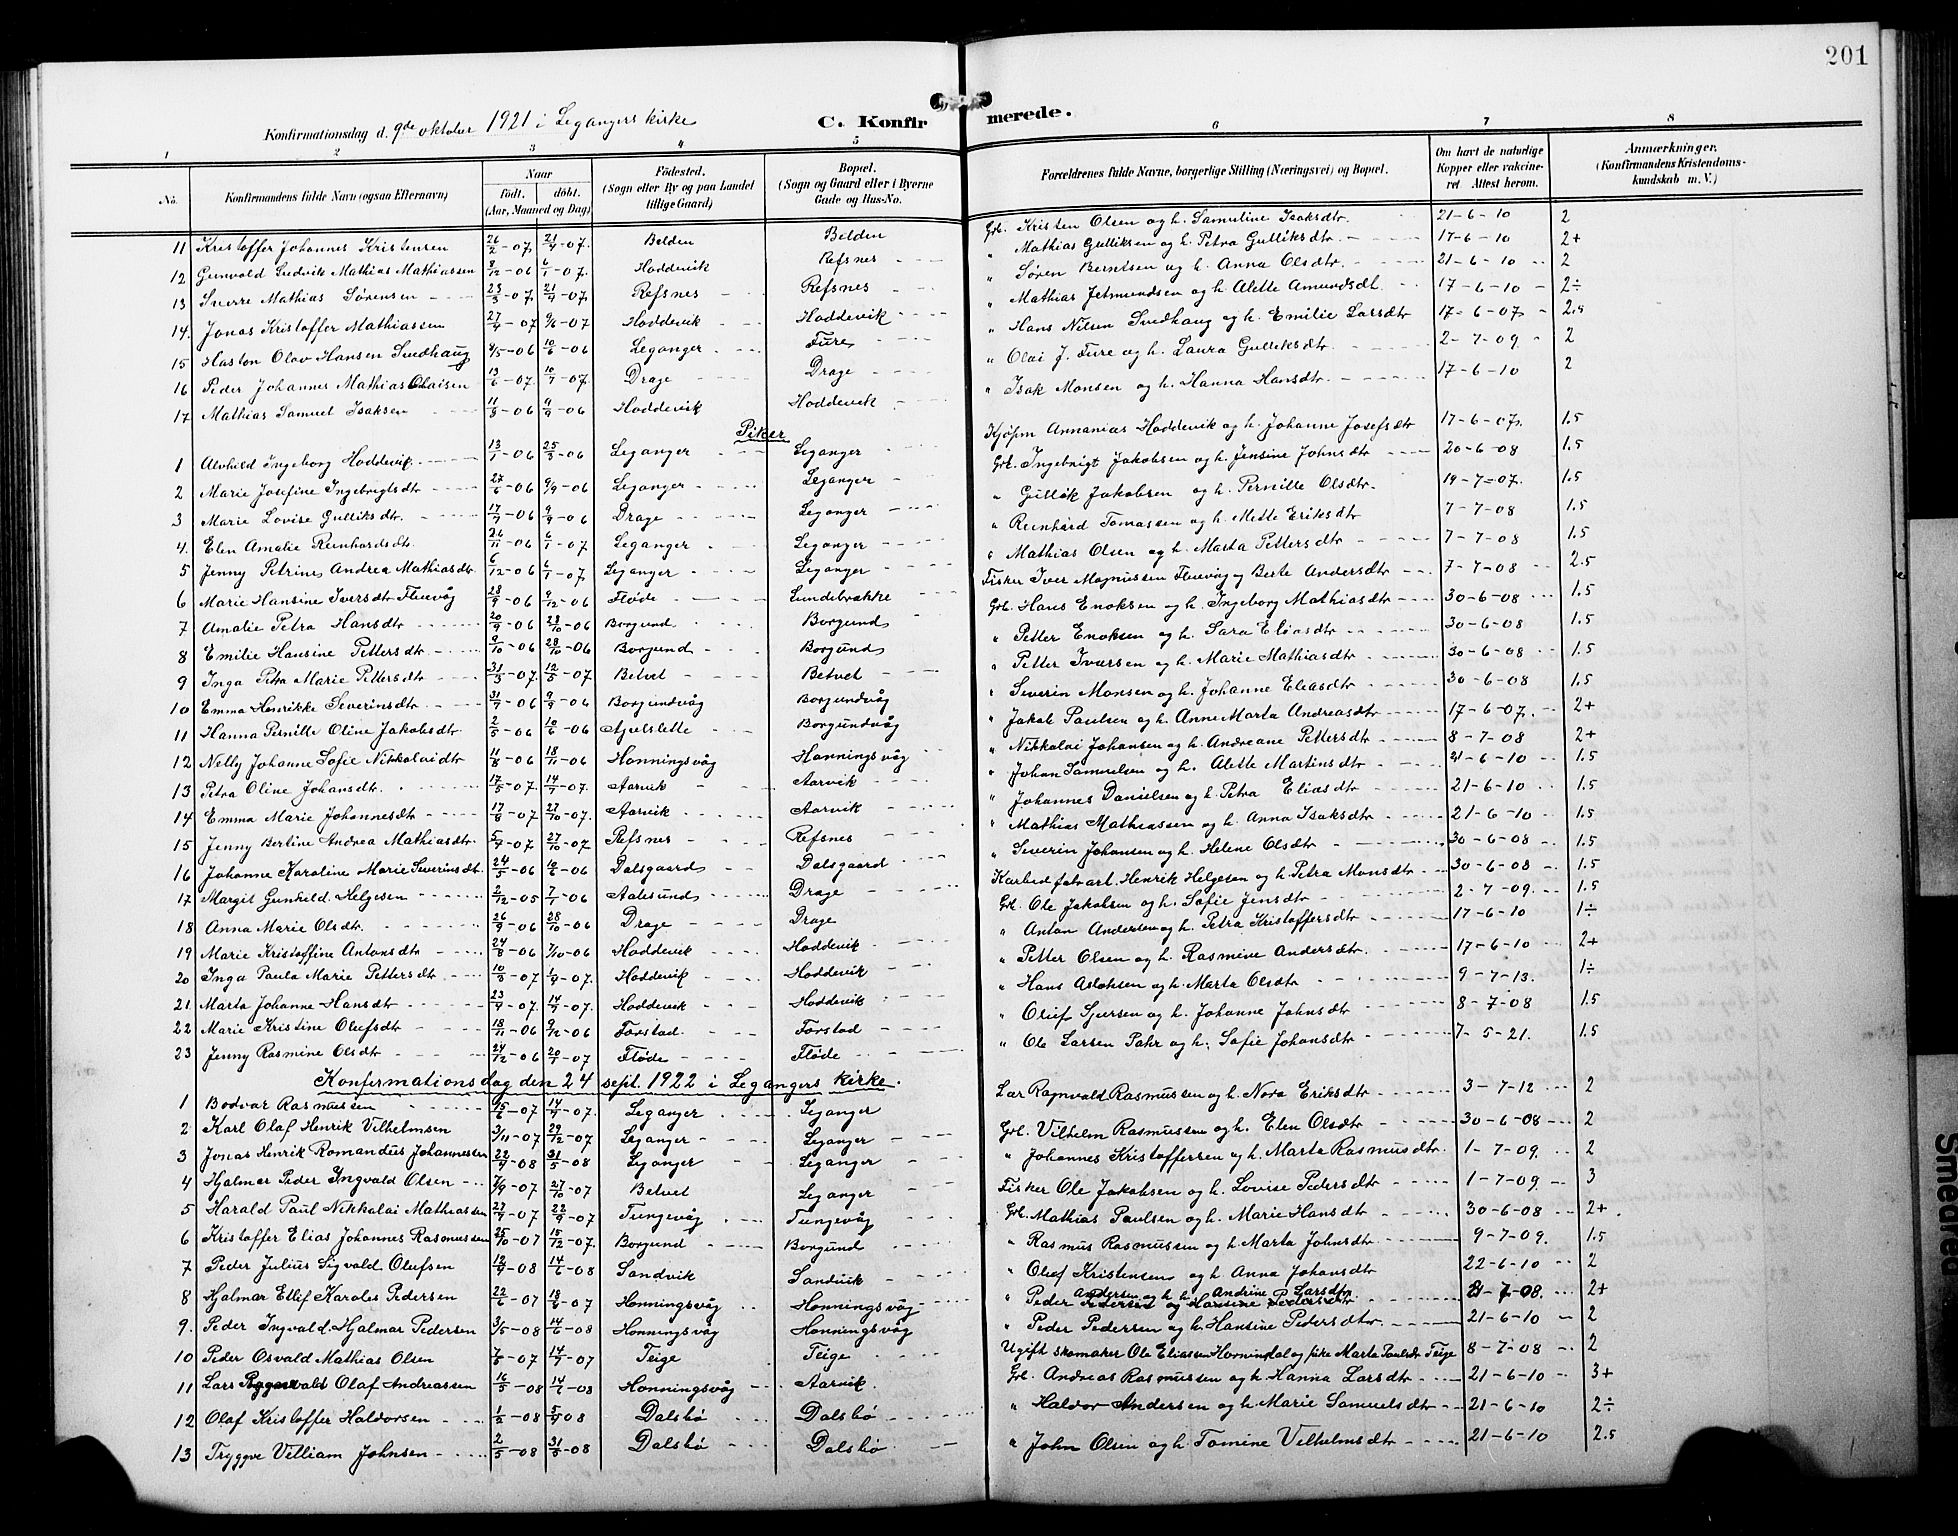 201
Konfirmationsdag d. 9de oktober 1921 i Legangers kirke C. Konfirmerede.
1 2 3 4 5 6 7 8
No. Konfirmandens fulde Navn (ogsaa Efternavn) Naar født. døbt. (Aar, Maaned og Dag) Fødested. (Sogn eller By og paa Landet tillige Gaard) Bopæl. (Sogn og Gaard eller i Byerne Gade og Hus-No. Forældrenes fulde Navne, borgerlige Stilling (Næringsvei) og Bopæl. Om havt de naturlige Kopper eller vakcineret Attest herom. Anmærkninger. (Konfirmandens Kristendomskundskab m. V.)
11 Kristoffer Johannes Kristensen 26/2-07 21/4-07. Belden Belden Grb. Kristen Olsen og h. Samuline Isaksdtr. 21-6-10 2
12 Gunvald Ludvik Mathias Mathiassen 8/12-06 6/1-07. Hoddevik Refsnes " Mathias Gulliksen og h. Petra Gulliksdtr. 17-6-10 2+
13 Sverre Mathias Sørensen 23/3-07. 21/4-07. Refsnes Refsnes " Søren Berntsen og h. Anna Olsdtr. 21-6-10 2
14. Jonas Kristoffer Mathiassen 27/4-07 9/6-07 Hoddevik Hoddevik " Mathias Jetmundsen og h. Alette Amundsdt. 17-6-10 2÷
15 Haston Olav Hansen Svedhaug 4/5-06 10/6-06 Leganger Fure " Hans Nilsen Svedhaug og h. Emilie Larsdtr 17-6-07 2.5
16 Peder Johannes Mathias Olaisen 13/6-07. 10/7-07. Drage Drage " Olai J. Fure og h. Laura Gulliksdtr. 2-7-09 2
17 Mathias Samuel Isaksen 11/8-06 9/9-06 Hoddevik Hoddevik " Isak Monsen og h. Hanna Hansdtr. 17-6-10 2
Piker
1 Alvhild Ingeborg Hoddevik 13/1-06 25/3-06 Leganger Leganger Kjøpm Annanias Hoddevik og h. Johanne Josefsdtr 17-6-07. 1.5
2 Marie Josefine Ingebrigtsdtr 27/6-06 9/9-06 Leganger Leganger Grb. Ingebrigt Jakobsen og h. Jensine Johnsdtr 20-6-08 1.5
3 Marie Lovise Gulliksdtr. 17/7-06 9/9-06 Drage Leganger " Gullik Jakobsen og h. Pernille Olsdtr. 19-7-07. 1.5
4. Elen Amalie Reinhardsdtr 26/11-06 6/1-07 Leganger Leganger " Reinhard Tomassen og h. Mette Eriksdtr 7-7-08 1.5
5 Jenny Petrine Andrea Mathiasdtr 6/12-06 6/1-07. Leganger Leganger " Mathias Olsen og h. Marta Pettersdtr 7-7-08 1.5
6 Marie Hansine Iversdtr Fluevåg 28/9-06 9/12-06 Fløde Lundebrække Fisker Iver Magnussen Fluevåg og Berte Andersdtr 7-7-08 2.5
7 Amalie Petra Hansdtr 20/9-06 28/10-06 Borgund Borgund Grb. Hans Enoksen og h. Ingeborg Mathiasdtr 30-6-08 1.5
8 Emilie Hansine Pettersdtr 9/10-06 28/10-06 Borgund Borgund " Petter Enoksen og h. Sara Eliasdtr 30-6-08 1.5
9 Inga Petra Marie Pettersdtr 31/3-07 12/5-07 Betvet Betvet " Petter Iversen og h. Marie Mathiasdtr 30-6-08 1.5
10 Emma Henrikke Severinsdtr 31/7-06 9/9-06 Borgundvåg Borgundvåg " Severin Monsen og h. Johanne Eliasdtr 30-6-08 1.5
11 Hanna Pernille Oline Jakobsdtr. 2/5-06 10/6-06 Apelslette Borgundvåg " Jakob Paulsen og h. Anne Marta Andreasdtr 17-6-07. 2+
12 Nelly Johanne Sofie Nikkolaidtr 11/8-06 18/11-06 Honningsvåg Honningsvåg " Nikkolai Johansen og h. Andreane Pettersdtr 8-7-08 2+
13 Petra Oline Johansdtr. 17/5-07. 14/7-07. Aarvik Aarvik " Johan Samuelsen og h. Alette Martinsdtr 21-6-10 1.5
14 Emma Marie Johannesdtr 17/8-07 27/10-07. Aarvik Aarvik " Johannes Danielsen og h. Petra Eliasdtr 21-6-10 1.5
15 Jenny Bertine Andrea Mathiasdtr. 5/9-07 27/10-07 Refsnes Refsnes " Mathias Mathiassen og h. Anna Isaksdtr 21-6-10 1.5
16 Johanne Karoline Marie Severinsdt. 24/5-06 10/6-06 Dalsgaard Dalsgaard " Severin Johansen og h. Helene Olsdtr 30-6-08 1.5
17 Margit Gunhild Helgesen 2/12-05 7/1-06 Aalesund Drage Henrik Helgesen og h. Petra Monsdtr 30-6-08 1.5
18 Anna Marie Olsdtr. 26/9-06 28/10-06 Drage Drage Grb. Ole Jakobsen og h. Sofie Jensdtr 2-7-09. 1.5
19 Marie Kristoffine Antonsdtr 24/8-06 7/10-06 Hoddevik Hoddevik " Anton Andersen og h. Petra Kristoffersdtr 17-6-10 1÷
20 Inga Paula Marie Pettersdtr 10/3-07 1/4-07. Hoddevik Hoddevik " Petter Olsen og h. Rasmine Andersdtr. 17-6-10 2+
21 Marta Johanne Hansdtr 23/4-07. 14/7-07. Hoddevik Hoddevik " Hans Aslaksen og h. Marta Olsdtr 9-7-13. 1÷
22 Marie Kristine Olufsdtr 18/11-06 9/12-06 Forstad Forstad " Oluf Sjursen og h. Johanne Johnsdtr 8-7-08 1.5
23 Jenny Rasmine Olsdtr 24/12-06 20/1-07 Fløde Fløde " Ole Larsen Pahr og h. Sofie Johansdtr 7-5-21. 1.5
Konfirmationsdag den 24 sept. 1922 i Legangers kirke.
1 Bodvar Rasmussen 15/6-07 14/7-07. Leganger Leganger Lær Ragnvald Rasmussen og h. Nora Eriksdtr 3-7-12 2
2 Karl Olaf Henrik Vilhelmsen 3/11-07 29/12-07 Leganger Leganger Grb. Vilhelm Rasmussen og h. Elen Olsdtr 30-6-08 2
3 Jonas Henrik Romandus Johannessen 22/4-08 31/5-08 Leganger Leganger " Johannes Kristoffersen og h. Marta Rasmusdtr. 1-7-09. 2
4 Hjalmar Peder Ingvald Olsen 7/9-07 27/10-07 Betvet Leganger Fisker Ole Jakobsen og h. Lovise Pedersdtr 1-7-09. 3
5 Harald Paul Nikkolai Mathiassen 27/7-07 22/9-07 Tungevåg Tungevåg Grb. Mathias Paulsen og h. Marie Hansdtr 30-6-08 2+
6 Kristoffer Elias Johannes Rasmussen 25/10-07 15/12-07. Borgund Borgund " Rasmus Rasmussen og h. Marta Johnsdtr 9-7-09. 1.5
7 Peder Julius Sigvald Olufsen 12/4-08 14/6-08 Sandvik Sandvik " Oluf Kristensen og h. Anna Johansdtr 22-6-10 2
8 Hjalmar Ellif Karolus Pedersen 22/6-07 18/8-07 Honningsvåg Honningsvåg " Peder Andersen og h. Andrine Larsdtr. 21-7-08. 2+
9. Peder Ingvald Hjalmar Pedersen 3/5-08 14/6-08 Honningsvåg Honningsvåg " Peder Pedersen og h. Hansine Pedersdtr 21-6-10 2
10 Peder Osvald Mathias Olsen 7/5-07 14/7-07 Teige Teige Ugift skomaker Ole Eliassen Hornindal og pike Marta Paulsdtr Teige 8-7-08 2
11 Lars Olaf Andreassen 16/5-08 14/6-08 Honningsvåg Aarvik Grb. Andreas Rasmussen og h. Hanna Larsdtr 21-6-10 3+
12 Olaf Kristoffer Haldorsen 1/3-08 5/4-08 Dalsbø Dalsbø " Haldor Andersen og h. Marie Samuelsdtr 21-6-10 2÷
13 Tryggve Villiam Johnsen 2/5-08 31/5-08 Dalsbø Dalsbø " John Olsen og h. Tomine Vilhelmsdtr 21-6-10 2.5